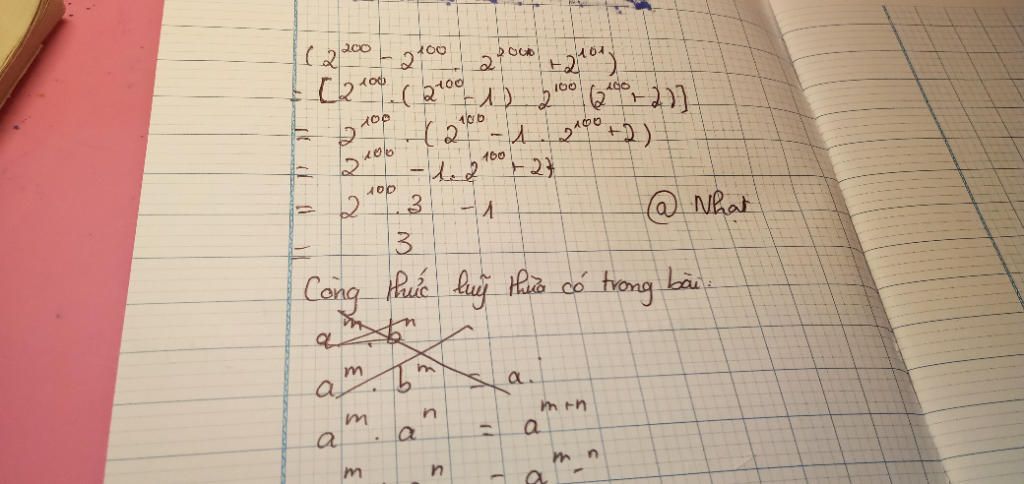 (2²⁰⁰ - 2¹⁰⁰ . 2²⁰⁰⁰ + 2¹⁰¹)
= [2¹⁰⁰ . (2¹⁰⁰ - 1) 2¹⁰⁰ (2¹⁰⁰ + 2)]
= 2¹⁰⁰ . (2¹⁰⁰ - 1 . 2¹⁰⁰ + 2)
= 2¹⁰⁰ - 1 . 2¹⁰⁰ + 2
= 2¹⁰⁰ . 3 - 1 @ Nhạt
= 3
Công thức luỹ thừa có trong bài:
aᵐ . bⁿ
aᵐ . bᵐ = a .
aᵐ . aⁿ = aᵐ⁺ⁿ